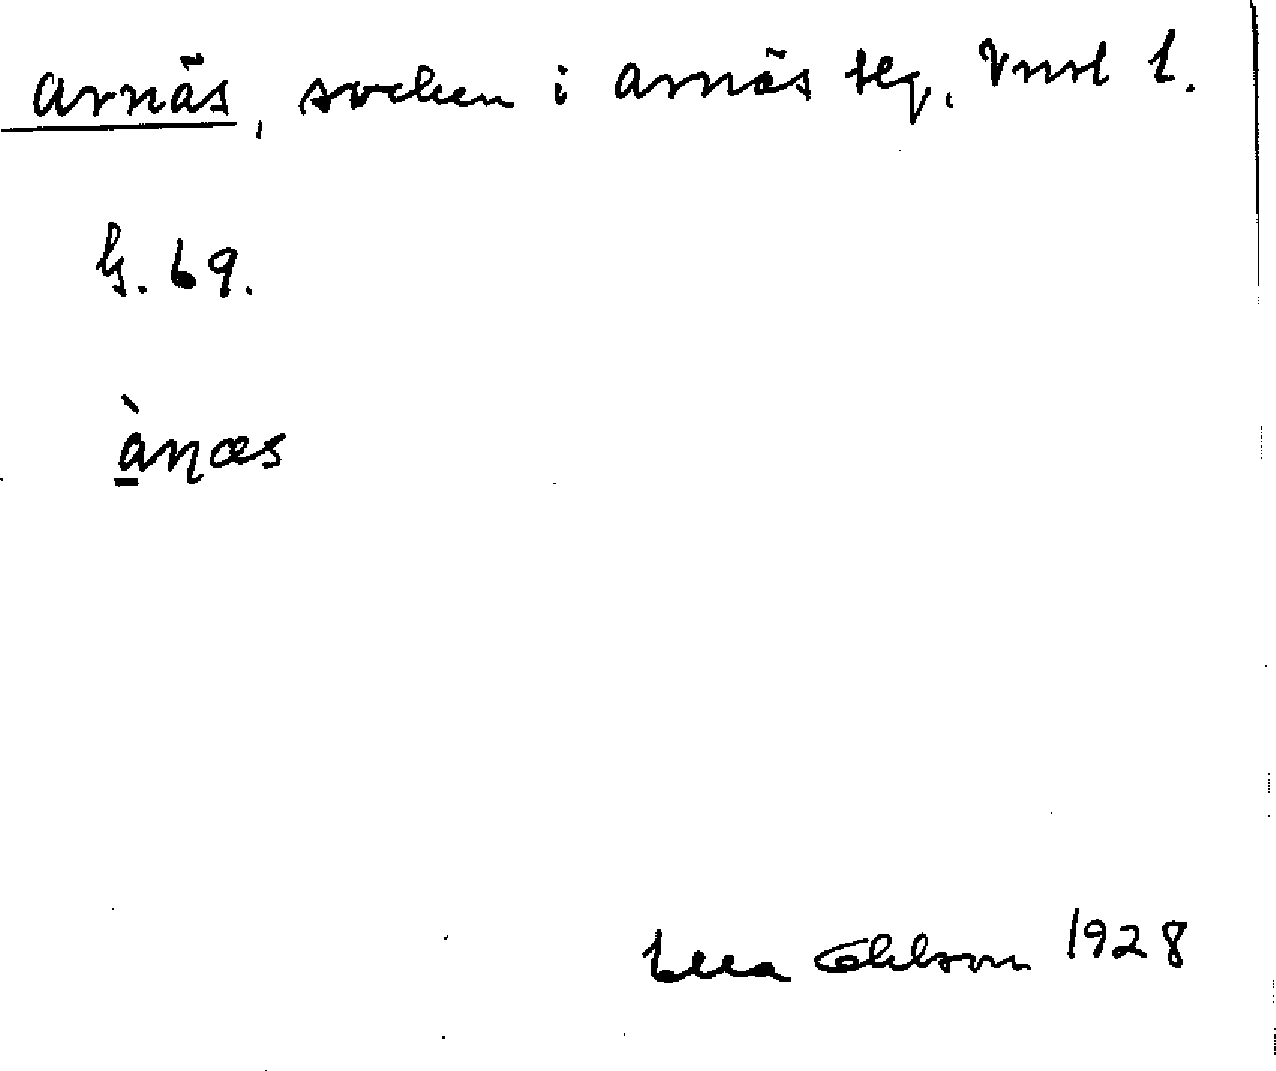 Arnäs, socken i Arnäs tlg, Vnrl l.
G. 69.
ànæs
Ella Ohlson 1928